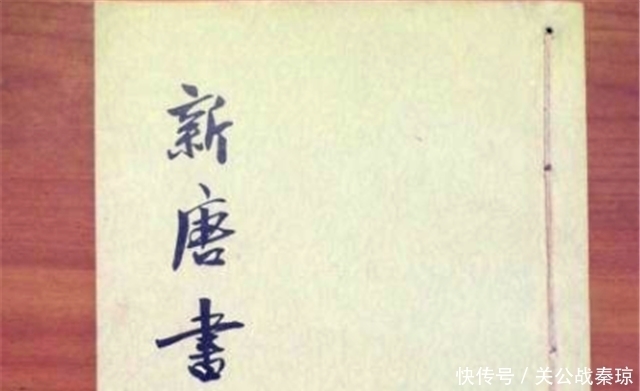 新唐書
快传号/关公战秦琼